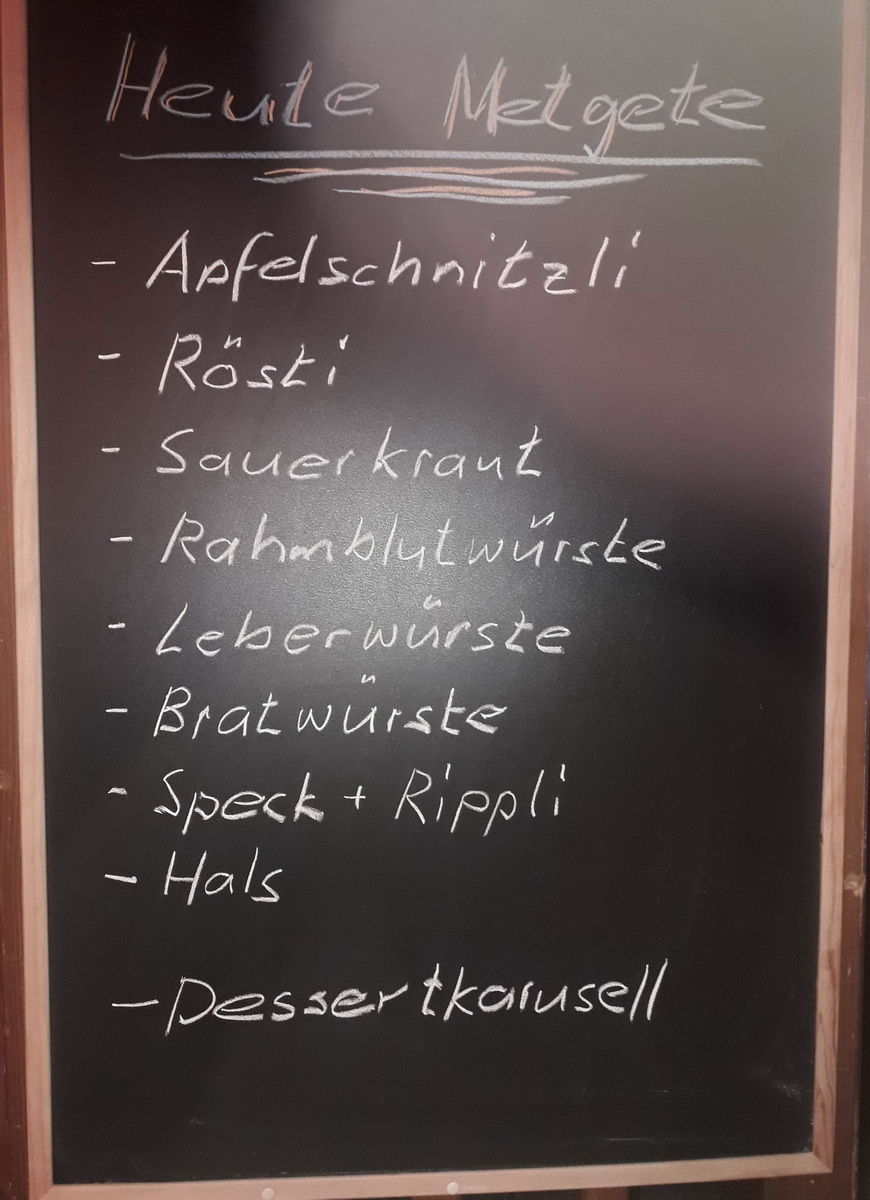 Heute Metgete
- Apfelschnitzli
- Rösti
- Sauerkraut
- Rahmblutwürste
- Leberwürste
- Bratwürste
- Speck + Rippli
- Hals
- Dessertkarusell